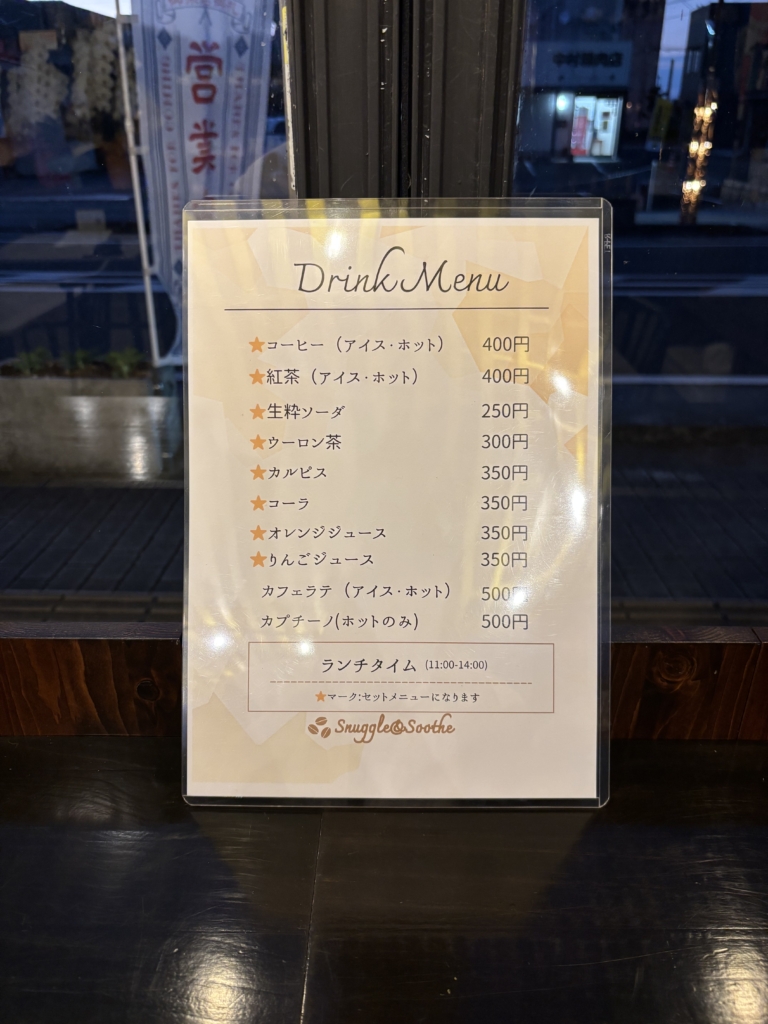 営業
Drink Menu
★コーヒー（アイス・ホット） 400円
★紅茶（アイス・ホット） 400円
★生粋ソーダ 250円
★ウーロン茶 300円
★カルピス 350円
★コーラ 350円
★オレンジジュース 350円
★りんごジュース 350円
カフェラテ（アイス・ホット） 500円
カプチーノ(ホットのみ) 500円
ランチタイム (11:00-14:00)
★マーク:セットメニューになります
Snuggle&Soothe